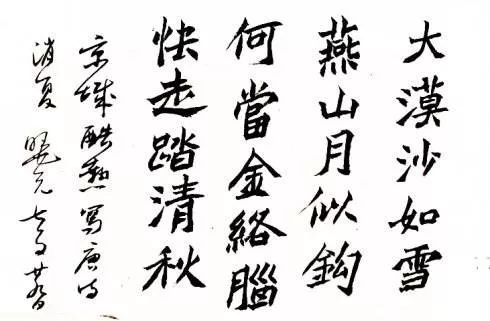 大漠沙如雪
燕山月似鉤
何當金絡腦
快走踏清秋
京城酷熱寫唐诗
消夏